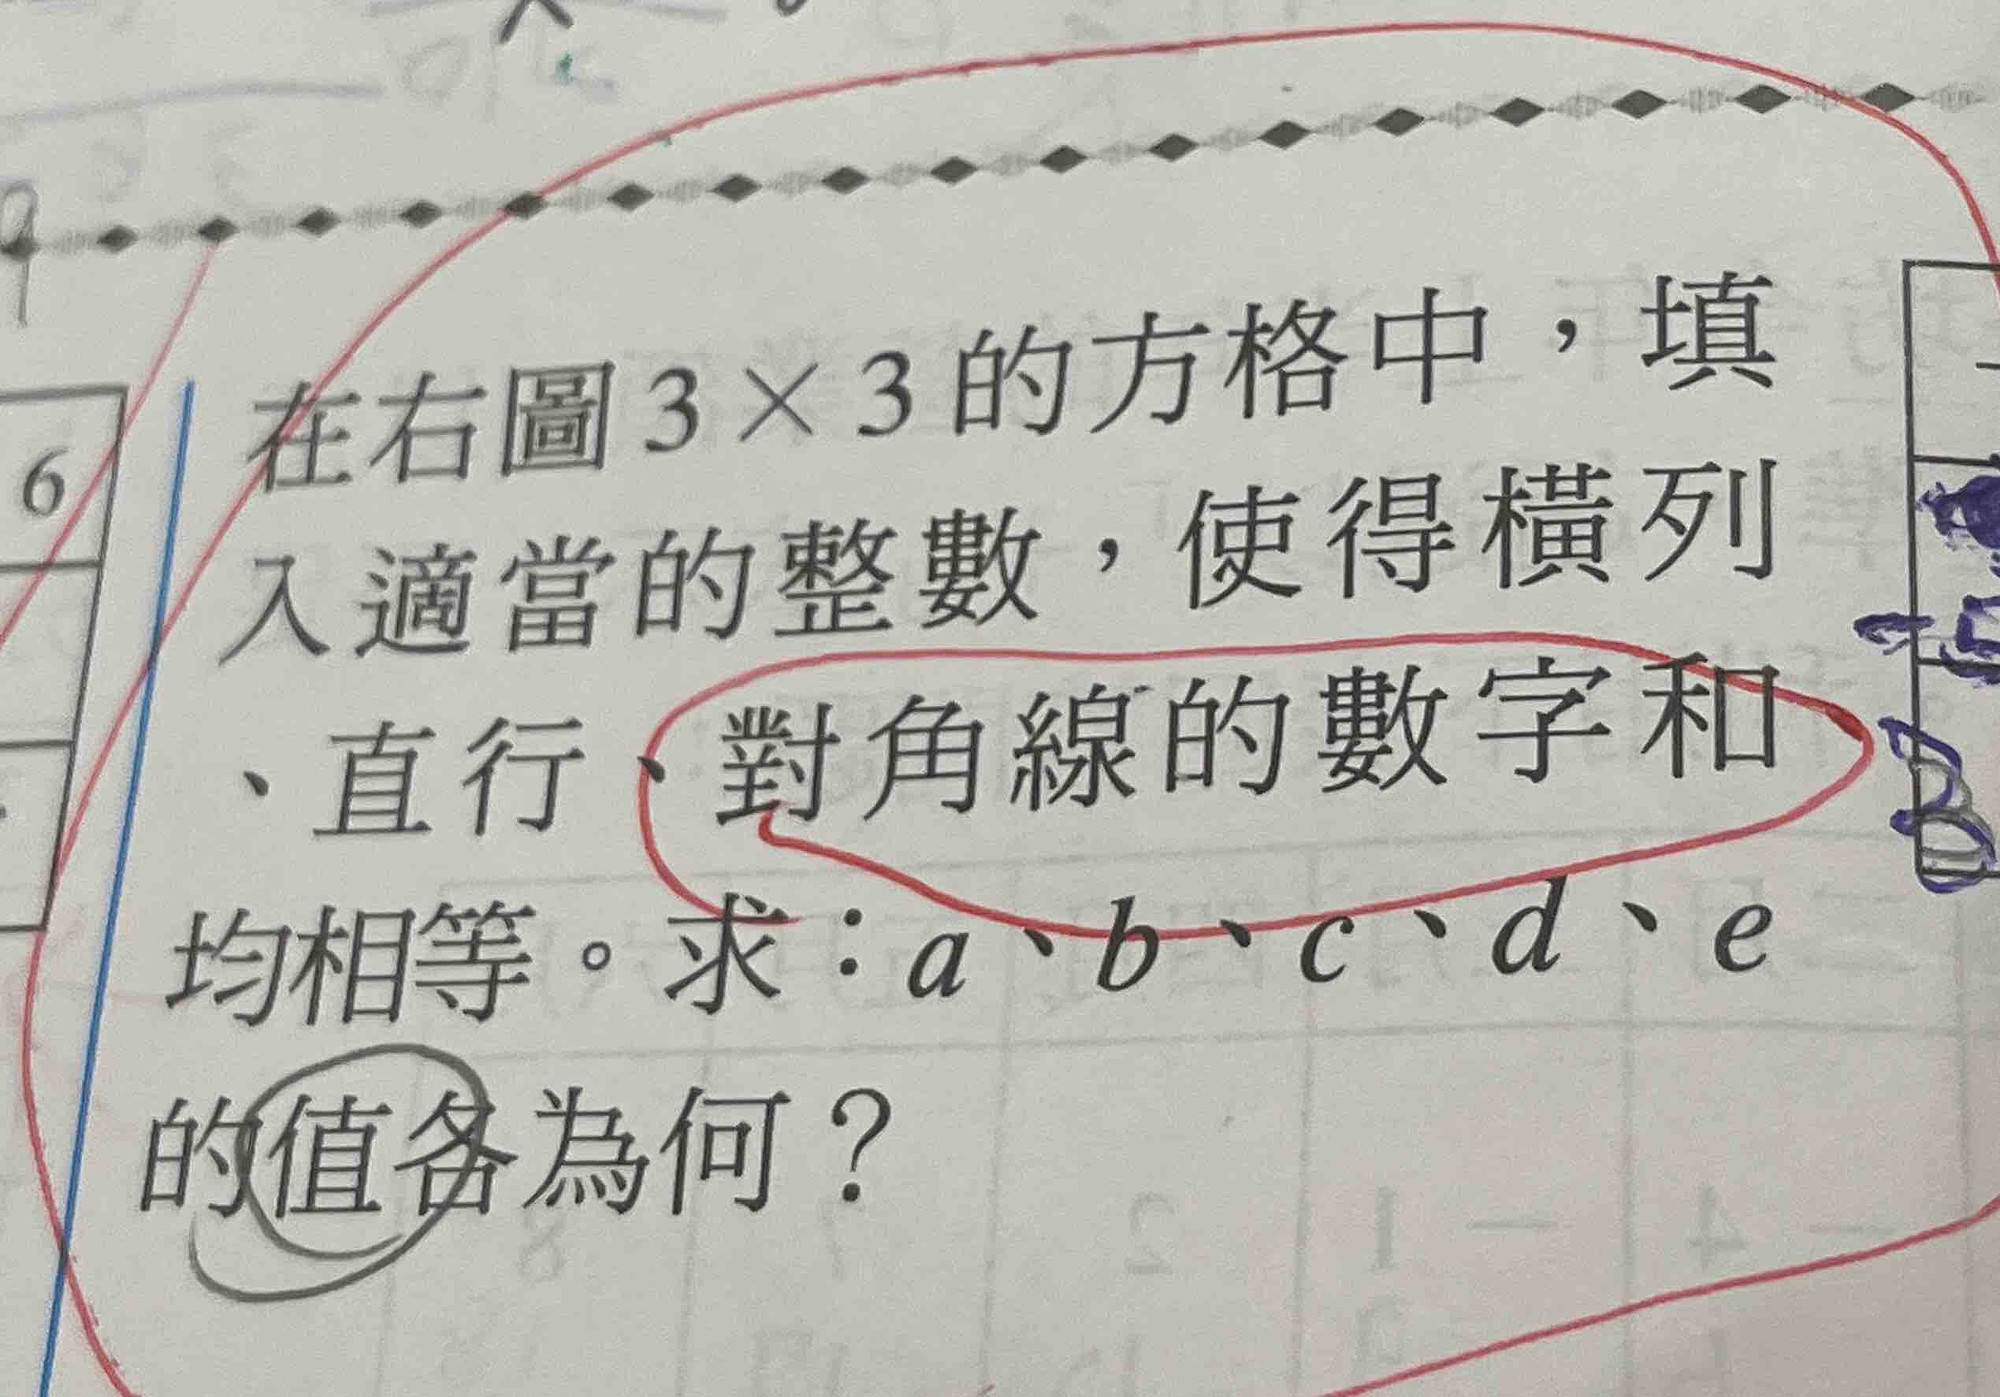 在右圖3×3的方格中，填
入適當的整數，使得橫列
、直行、對角線的數字和
均相等。求：a、b、c、d、e
的值各為何？
6
9